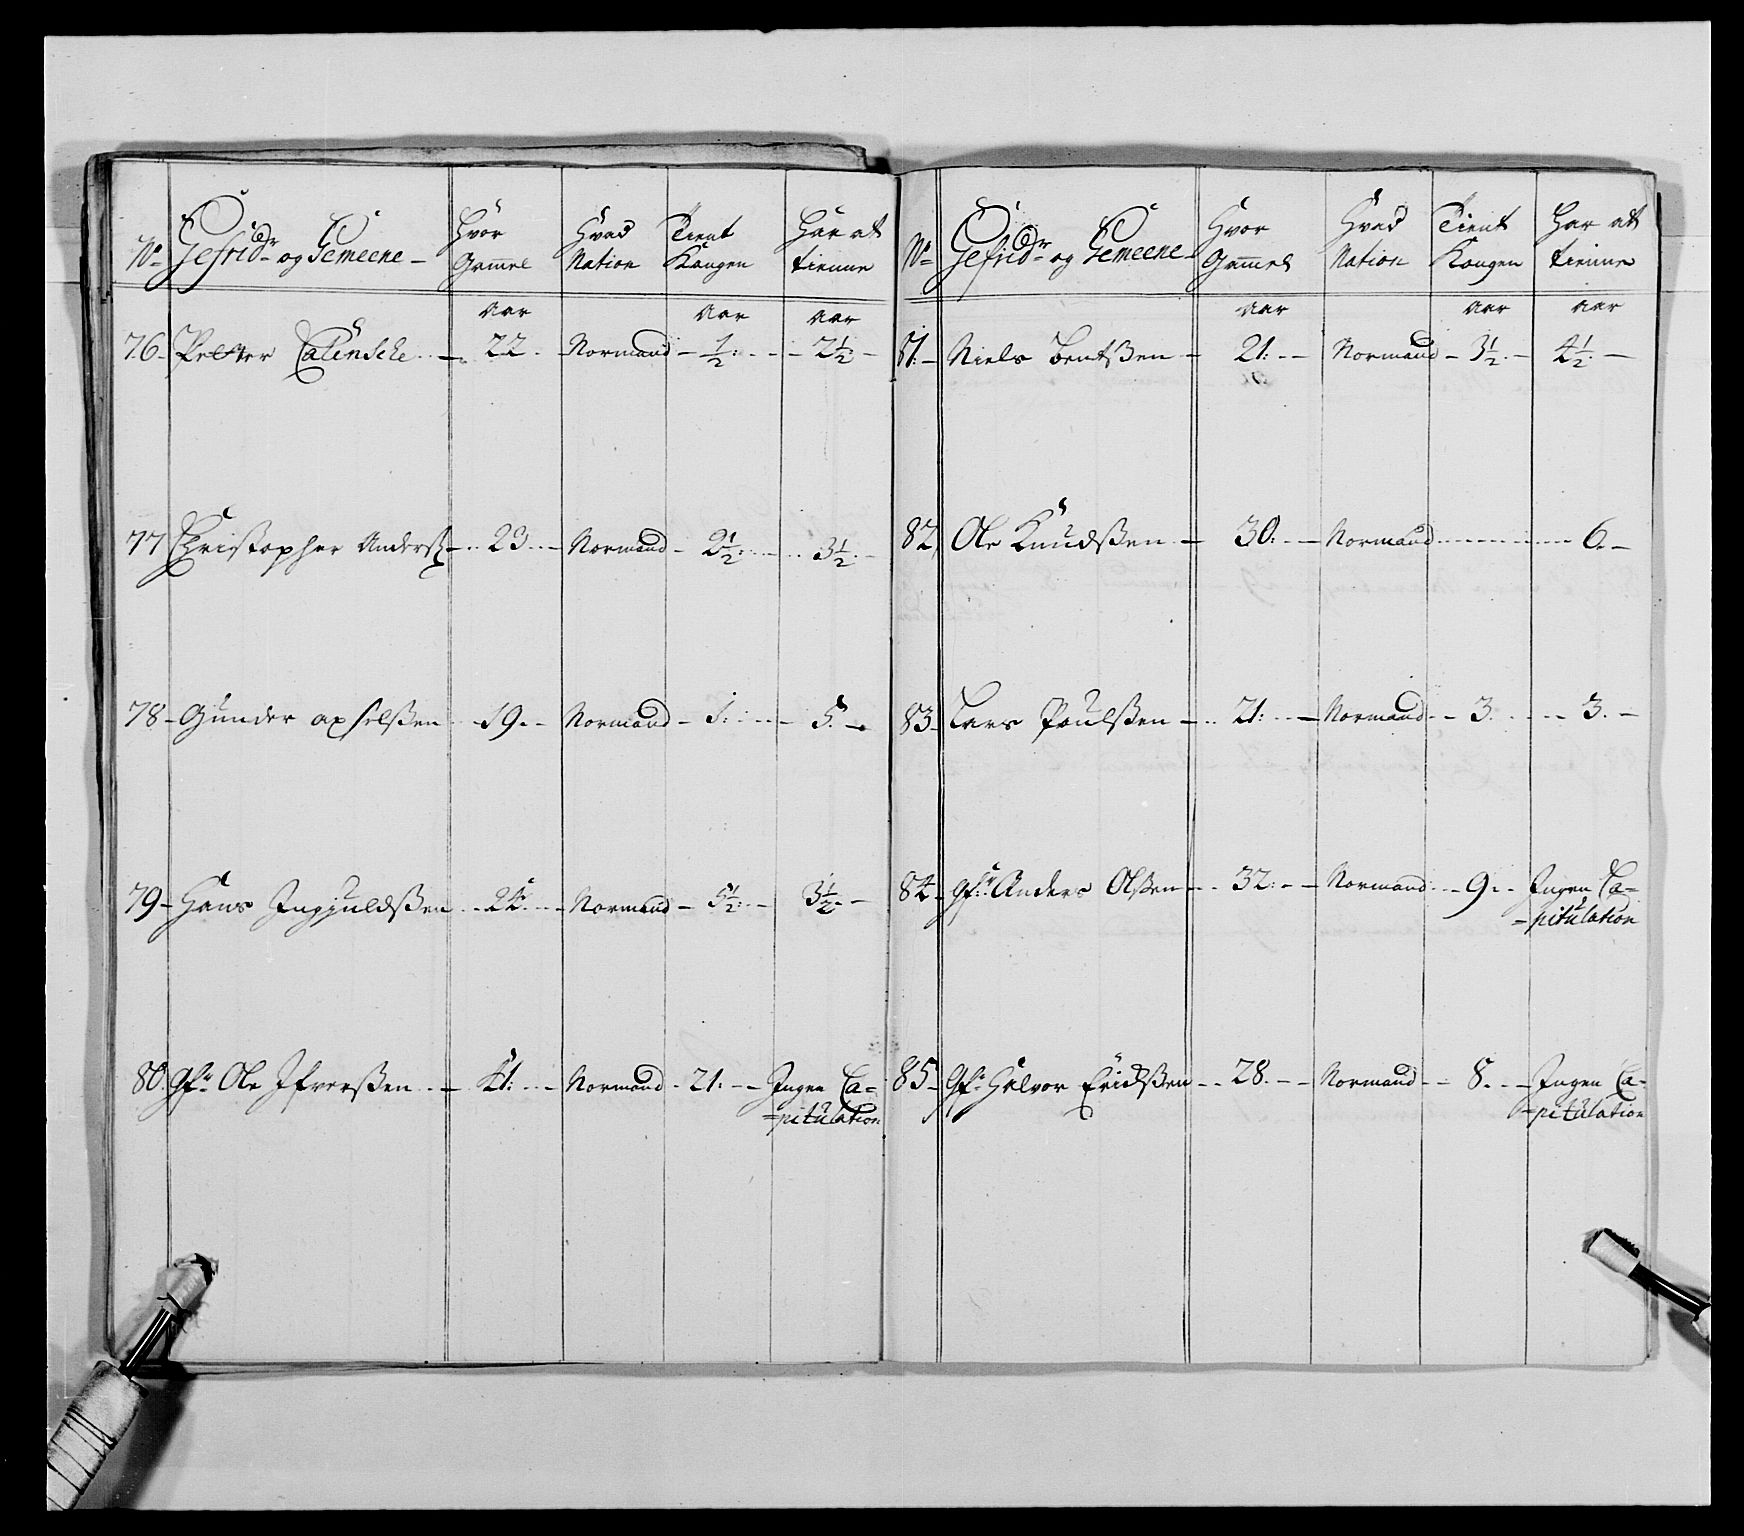 No Gefridr og Gemeene Hvor Gamel Hvad Nation Tient Kongen Har at tienne
aar aar aar
76 Petter Calensche 22 Normand 1/2 2 1/2
77 Christopher Anderss 23 Normand 2 1/2 3 1/2
78 Gunder axselssen 19 Normand 1 5
79 Hans Inguldssen 24 Normand 5 1/2 3 1/2
80 Gfr Ole Ifverssen 41 Normand 21 Ingen Ca=
=pitulation
No Gefridr og Gemeene Hvor Gamel Hvad Nation Tient Kongen Har at tienne
aar aar aar
81 Niels Bentssen 21 Normand 3 1/2 4 1/2
82 Ole Knudssen 30 Normand 6
83 Lars Poulssen 21 Normand 3 3
84 Gfr Anders Olssen 32 Normand 9 Ingen Ca=
=pitulation
85 Gfr Halvor Eridssen 28 Normand 8 Ingen Ca=
=pitulation